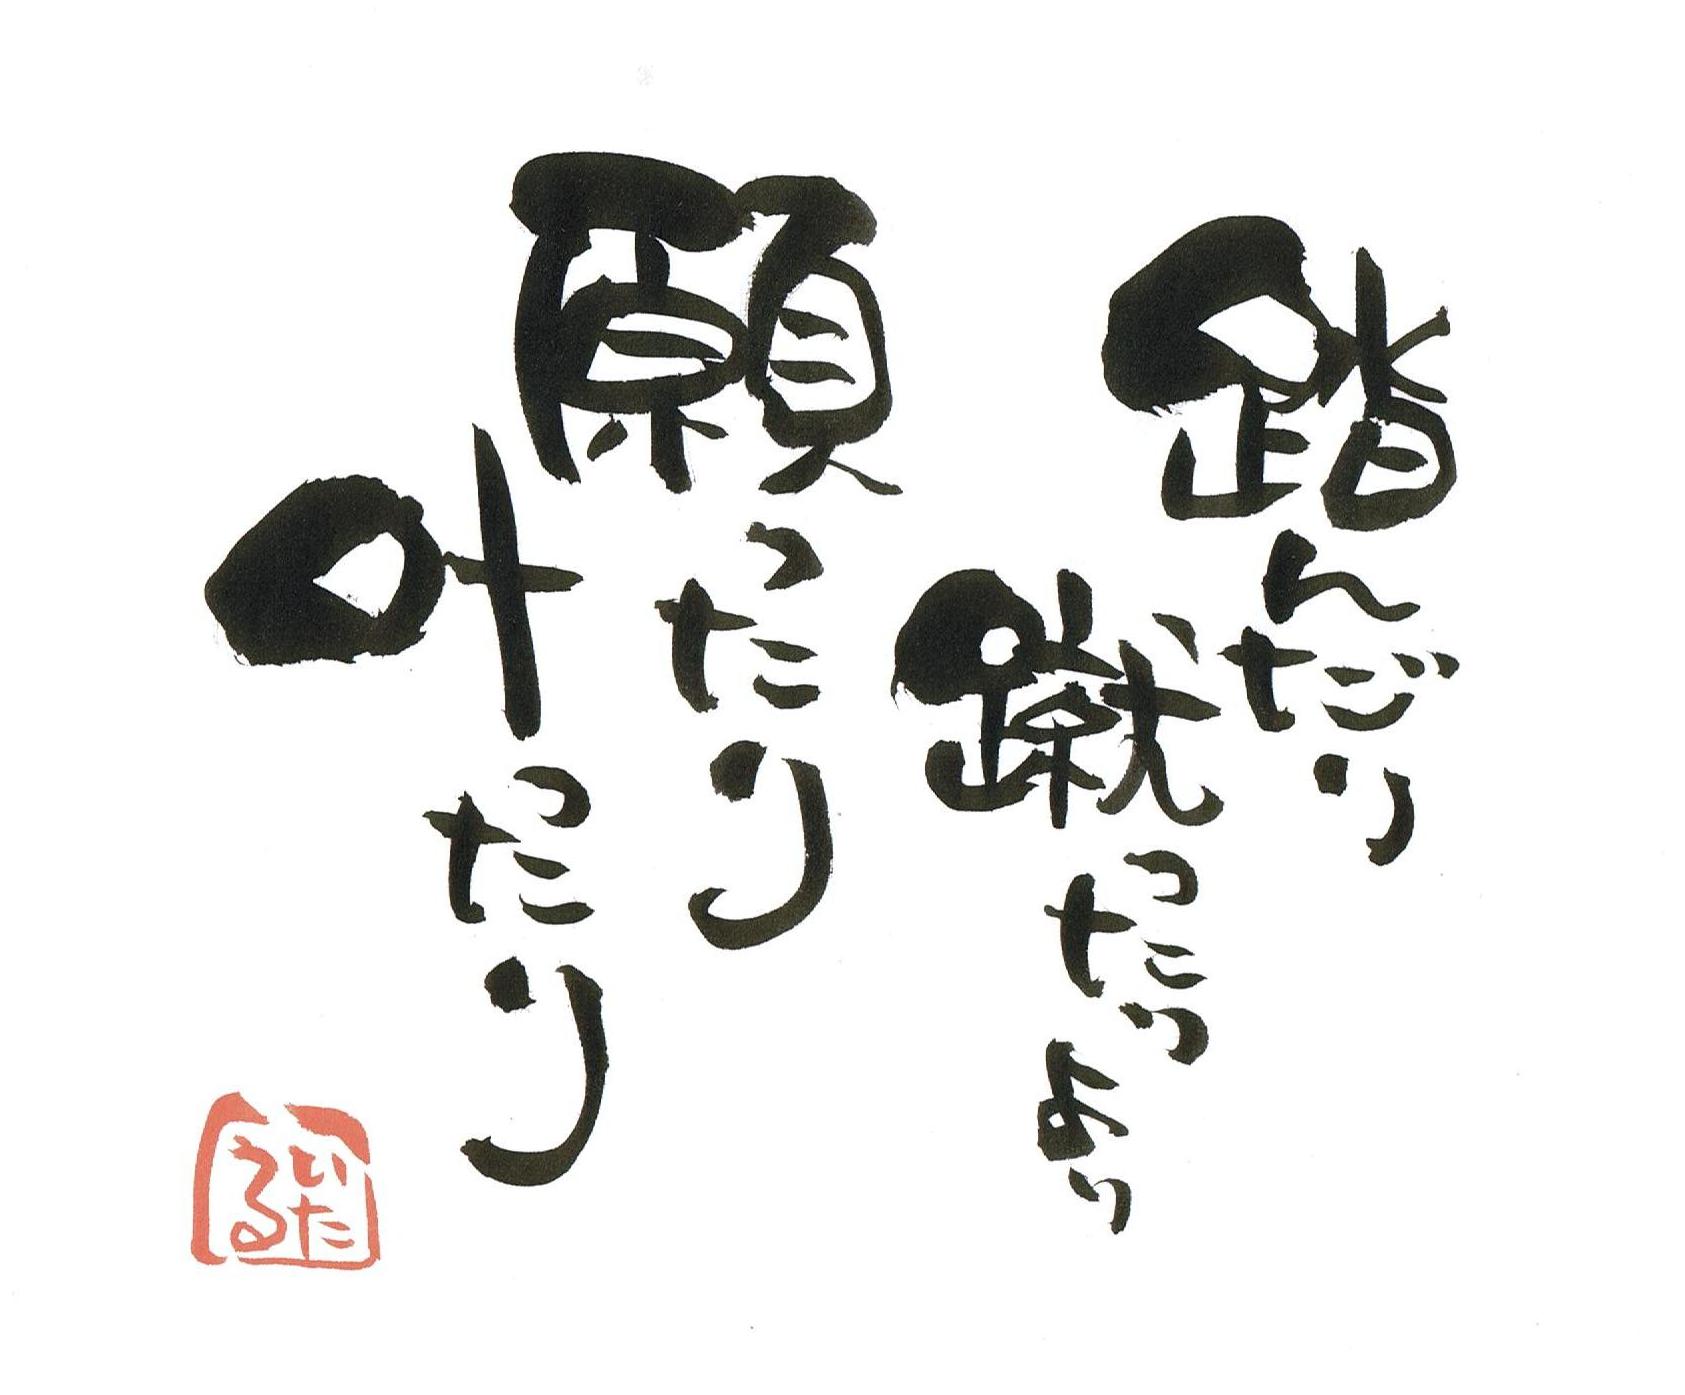 踏んだり
蹴ったりより
願ったり
叶ったり
いたる